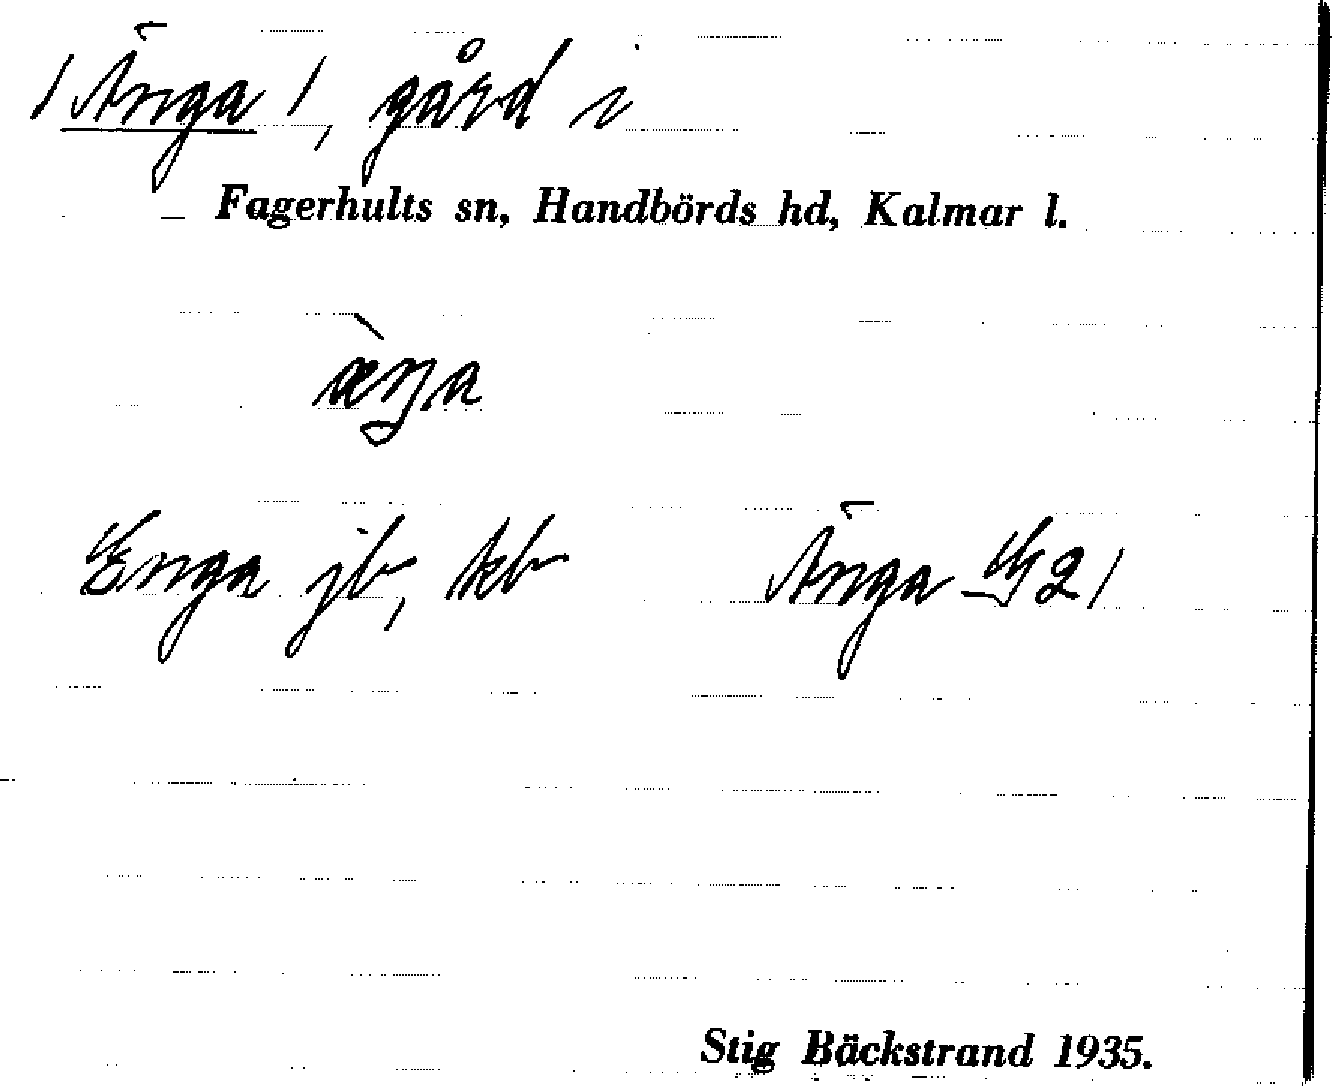 / Änga /, gård i
Fagerhults sn, Handbörds hd, Kalmar l.
æ̀ŋa
Enga jb, kb Änga
Stig Bäckstrand 1935.